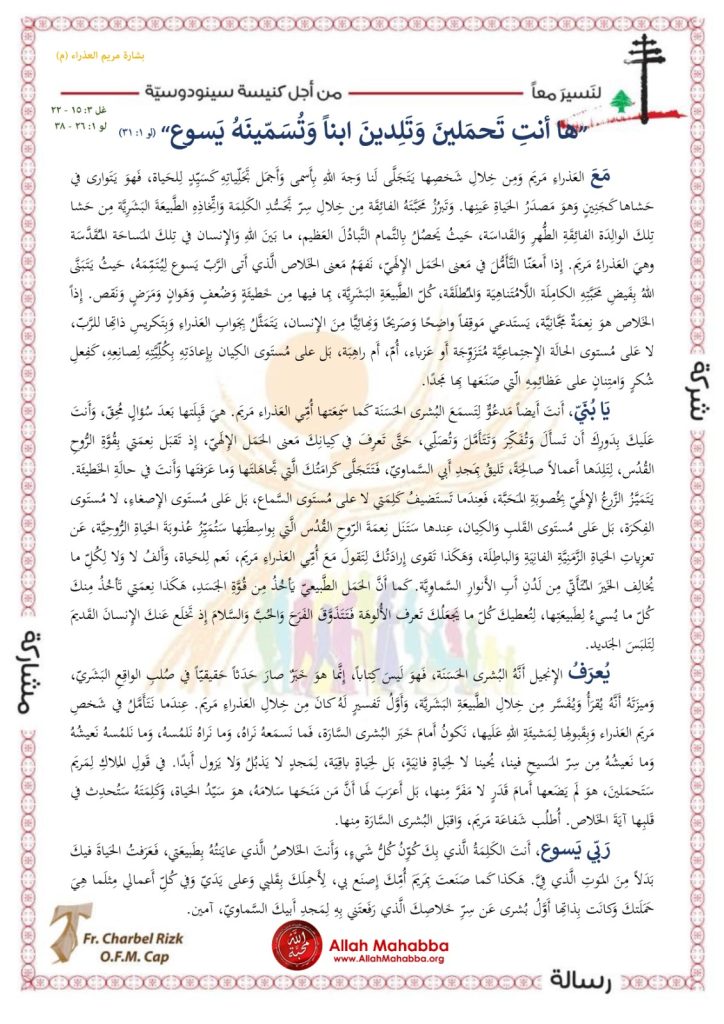 بشارة مريم العذراء (م)
لنَسيرَ معاً من أجل كنيسة سينودوسيّة
غل ٣: ١٥ - ٢٢
لو ١: ٢٦ - ٣٨
”ها أنتِ تَحمَلينَ وَتَلِدينَ ابناً وَتُسَمّينَهُ يَسوع“ (لو ١: ٣١)
مَعَ العَذراءِ مَريَم وَمِن خِلالِ شَخصِها يَتَجَلَّى لَنا وَجهَ اللهِ بِأَسمى وَأجمَل تَجَلِّياتِهِ كَسَيِّدٍ لِلحَياة، فَهوَ يَتَوارى في
حَشاها كَجَنِينٍ وَهوَ مَصدَرُ الحَياةِ عَينِها. وَتَبرُزُ مَحَبَّتَهُ الفائِقة مِن خِلالِ سِرِّ تَجَسُّدِ الكَلِمَة وَاتِّخاذِهِ الطَّبيعَةَ البَشَرِيَّة مِن حَشا
تِلكَ الوالِدَة الفائِقَةِ الطُّهرِ وَالقَداسَة، حَيثُ يَحصُلُ بِالتَّمام التَّبادُلَ العَظيم، ما بَينَ اللهِ وَالإنسان في تِلكَ المَساحَة المُقَدَّسَة
وهيَ العَذراءُ مَريَم. إذا أمعَنّا التَّأَمُّلَ في مَعنى الحَمل الإلَهيّ، نَفهَمُ مَعنى الخَلاص الَّذي أتى الرَّبّ يَسوع لِيُتَمِّمَهُ، حَيثُ يَتَبَنَّى
اللهُ بِفَيضِ مَحَبَّتِهِ الكامِلَة اللّامُتناهِيَة وَالمُطلَقَة، كُلّ الطَّبيعَةِ البَشَرِيَّة، بِما فيها مِن خَطيئَةٍ وَضُعفٍ وَهَوانٍ وَمَرَضٍ وَنَقص. إذاً
الخَلاص هوَ نِعمَةٌ مَجَّانِيَّة، يَستَدعي مَوقِفاً واضِحًا وَصَريحًا وَنِهائِيًّا مِنَ الإنسان، يَتَمَثَّلُ بِجَوابِ العَذراءِ وَبِتَكريسِ ذاتِها للرَّبّ،
لا عَلى مُستَوى الحالَة الإجتِماعِيَّة مُتَزَوِّجَة أو عَزباء، أُمّ، أم راهِبَة، بَل عَلى مُستَوى الكيان بِإعادَتِهِ بِكُلِّيَّتِهِ لِصانِعِهِ، كَفِعلِ
شُكرٍ وَامتِنانٍ عَلى عَظائِمِهِ الّتي صَنَعَها بِها مَجدًا.
يَا بُنَيّ، أنتَ أيضاً مَدعُوٌّ لِتَسمَعَ البُشرى الحَسَنَة كَما سَمِعَتها أُمِّي العَذراء مَريَم. هيَ قَبِلَتها بَعدَ سُؤالٍ مُحِقّ، وَأنتَ
عَلَيكَ بِدَورِكَ أن تَسألَ وَتُفَكِّرَ وَتَتَأمَّلَ وَتُصَلّي، حَتَّى تَعرِفَ في كِيانِكَ مَعنى الحَمل الإلَهيّ، إذ تَقبَل نِعمَتي بِقُوَّةِ الرُّوحِ
القُدُس، لِتَلِدَها أعمالاً صالِحَةً، تَليقُ بِمَجدِ أبي السَّماويّ، فَتَتَجَلَّى كَرامَتُكَ الَّتي تَجاهَلتَها وَما عَرَفتَها وَأنتَ في حالَةِ الخَطيئَة.
يَتَمَيَّزُ الزَّرعُ الإلَهيّ بِخُصوبَةِ المَحَبَّة، فَعِندَما تَستَضيفُ كَلِمَتي لا على مُستَوى السَّماع، بَل عَلى مُستَوى الإصغاءِ، لا مُستَوى
الفِكرَة، بَل عَلى مُستَوى القَلبِ وَالكِيان، عِندَها سَتَنَل نِعمَةَ الرّوحِ القُدُّس الَّتي بِواسِطَتِها سَتُمَيِّزُ عُذوبَةَ الحَياةِ الرُّوحِيَّة، عَن
تعزِياتِ الحَياة الزَّمَنِيَّة الفانِيَة وَالباطِلَة، وَهَكَذا تَقوى إرادَتُكَ لِتَقولَ مَعَ أُمِّي العَذراءِ مَريَم، نَعم لِلحَياة، وَألفُ لا وَلا لِكُلِّ ما
يُخالِف الخَيرَ المُتَأَتِّيَ مِن لَدُنِ أبِ الأنوارِ السَّماوِيَّة. كَما أنَّ الحَملَ الطَّبيعيّ يَأخُذُ مِن قُوَّةِ الجَسَدِ، هَكَذا نِعمَتي تَأخُذُ مِنكَ
كُلّ ما يُسيءُ لِطَبيعَتِها، لِتُعطيكَ كُلّ ما يَجعَلُكَ تَعرِفَ الأُلوهَةَ فَتَتَذَوَّقَ الفَرَحَ وَالحُبَّ وَالسَّلامَ إذ تَخلَع عَنكَ الإنسانَ القَديمَ
لِتَلبَسَ الجَديد.
يُعرَفُ الإنجيل أنَّهُ البُشرى الحَسَنَة، فَهوَ لَيسَ كِتاباً، إنَّما هوَ خَبَرٌ صارَ حَدَثاً حَقيقِيًّا في صُلبِ الواقِعِ البَشَريّ،
وَميزَتَهُ أنَّهُ يُقرَأُ وَيُفَسَّر مِن خِلالِ الطَّبيعَةِ البَشَرِيَّة، وَأوَّلُ تَفسيرٍ لَهُ كانَ مِن خِلالِ العَذراءِ مَريَم. عِندَما نَتَأَمَّلُ في شَخصِ
مَريَم العَذراء وَبِقَبولِها لِمَشيئَةِ اللهِ عَلَيها، نَكونُ أمامَ خَبَر البُشرى السَّارَة، فَما نَسمَعهُ نَراهُ، وَما نَراهُ نَلمُسهُ، وَما نَلمُسهُ نَعيشُهُ
وَما نَعيشُهُ مِن سِرِّ المَسيحِ فينا، يُحيينا لا لِحَياةٍ فانِيَةٍ، بَل لِحَياةٍ باقِيَة، لِمَجدٍ لا يَذبُلُ وَلا يَزول أبدًا. في قَولِ المَلاكِ لِمَريَم
سَتَحمَلين، هوَ لَم يَضَعها أمامَ قَدَرٍ لا مَفَرَّ مِنها، بَل أعرَبَ لَها أنَّ مَن مَنَحَها سَلامَهُ، هوَ سَيِّدُ الحَياة، وَكَلِمَتُهُ سَتُحدِث في
قَلبِها آيَةَ الخَلاص. أُطلُب شَفاعَة مَريَم، وَاقبَلِ البُشرى السَّارَة مِنها.
رَبّي يَسوع، أنتَ الكَلِمَةُ الَّذي بِكَ كُوِّنَ كُلُّ شَيءٍ، وَأنتَ الخَلاصُ الَّذي عايَنتُهُ بِطَبيعَتي، فَعَرَفتُ الحَياةَ فيكَ
بَدَلاً مِنَ المَوتِ الَّذي فِيَّ. هَكَذا كَما صَنَعتَ بِمَريَمَ أُمِّكَ إصنَع بي، لِأحمِلَكَ بِقَلبي وَعلى يَدَيّ وَفي كُلّ أعمالي مِثلَما هِيَ
حَمَلَتكَ وَكانَت بِذاتِها أوَّلُ بُشرى عَن سِرِّ خَلاصِكَ الَّذي رَفَعتَني بِهِ لِمَجدِ أبيكَ السَّماويّ، آمين.
شركة
مشاركة
رسالة
Fr. Charbel Rizk
O.F.M. Cap
الله محبة
Allah Mahabba
www.AllahMahabba.org